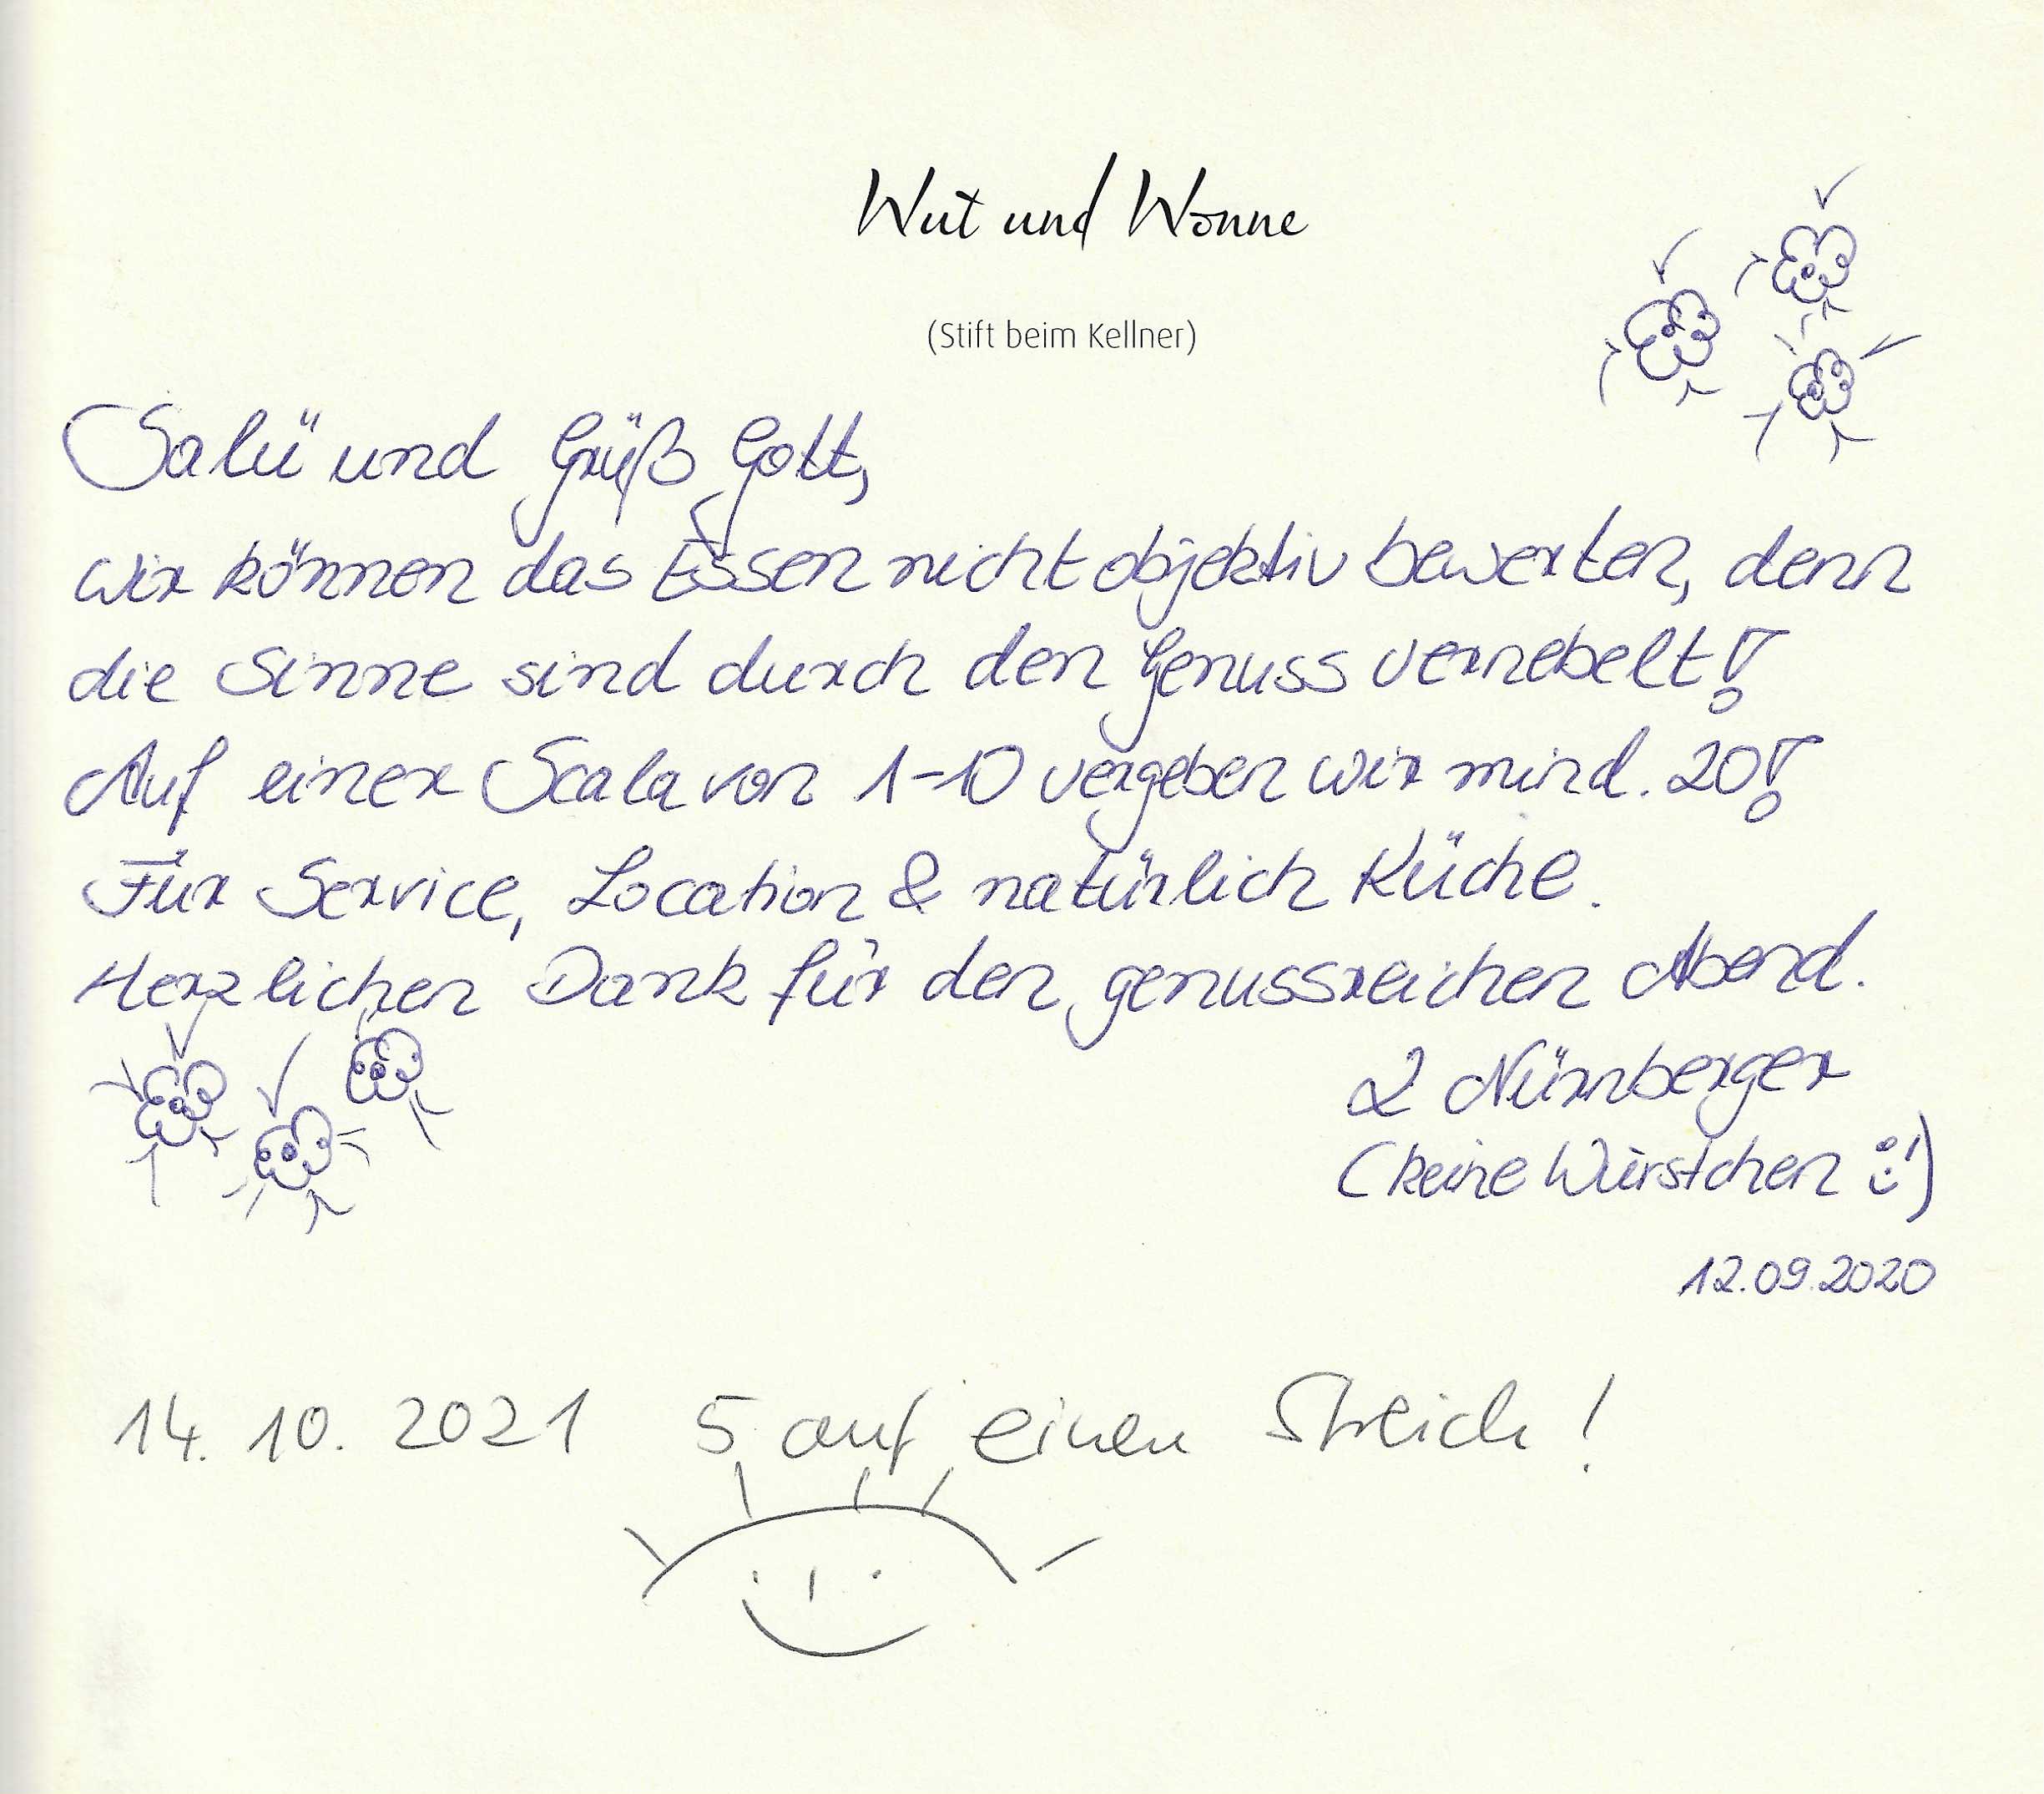 Wut und Wonne
(Stift beim Kellner)
Salü und Grüß Gott,
wir können das Essen nicht objektiv bewerten, denn
die Sinne sind durch den Genuss vernebelt!
Auf einer Scala von 1-10 vergeben wir mind. 20!
Für Service, Location & natürlich Küche.
Herzlichen Dank für den genussreichen Abend.
2 Nürnberger
(keine Würstchen :-))
12.09.2020
14. 10. 2021 5 auf einen Streich!